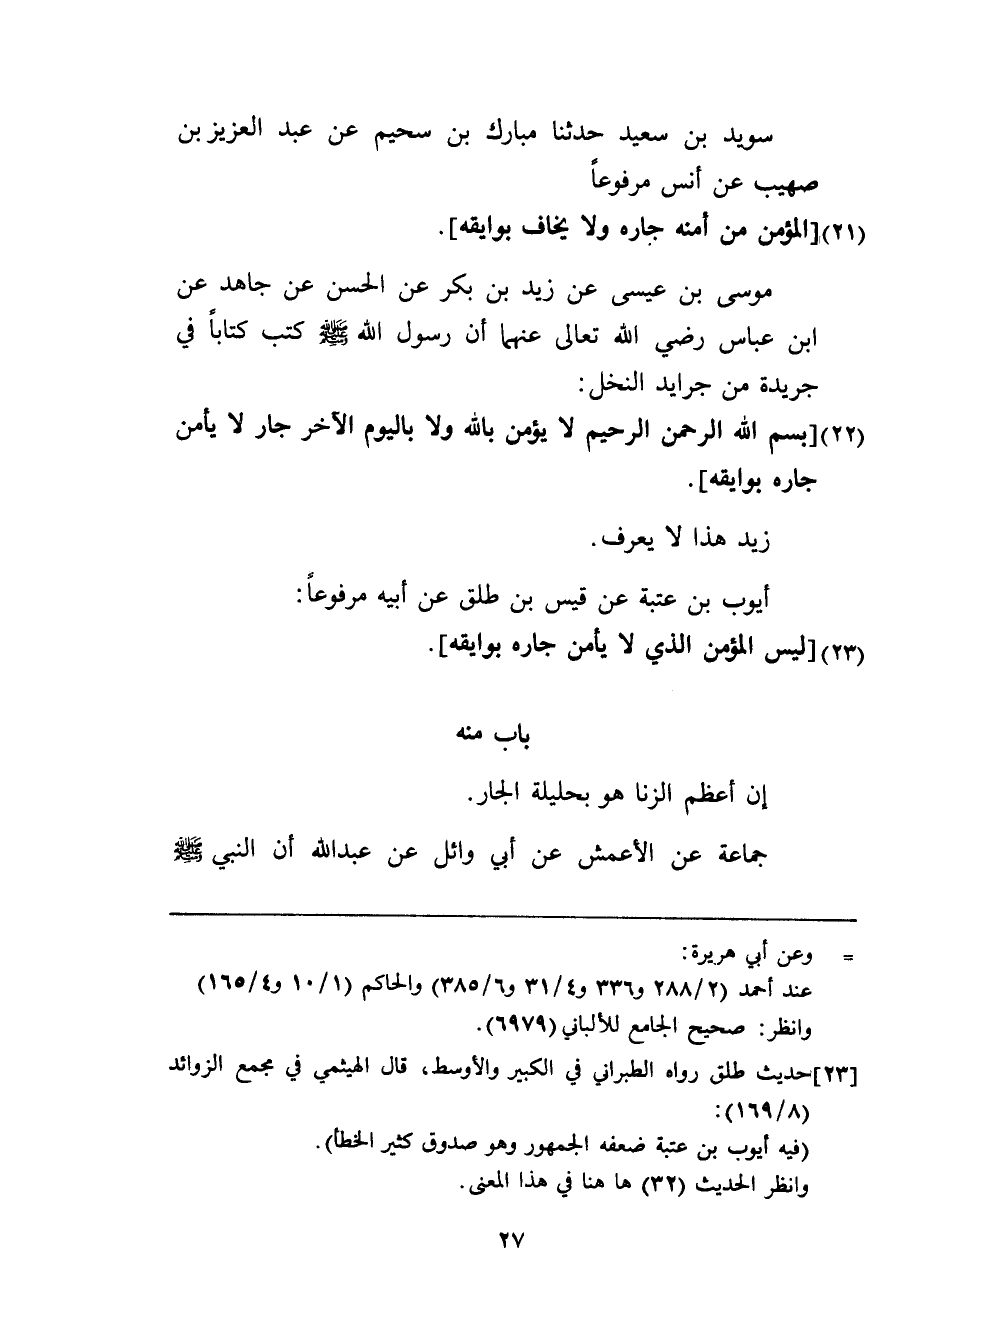 سويد بن سعيد حدثنا مبارك بن سحيم عن عبد العزيز بن
صهيب عن أنس مرفوعاً
(٢١)[المؤمن من أمنه جاره ولا يخاف بوايقه].
موسى بن عيسى عن زيد بن بكر عن الحسن عن جاهد عن
ابن عباس رضي الله تعالى عنهما أن رسول الله ﷺ كتب كتاباً في
جريدة من جرايد النخل:
(٢٢)[بسم الله الرحمن الرحيم لا يؤمن بالله ولا باليوم الآخر جار لا يأمن
جاره بوايقه].
زيد هذا لا يعرف.
أيوب بن عتبة عن قيس بن طلق عن أبيه مرفوعاً:
(٢٣)[ليس المؤمن الذي لا يأمن جاره بوايقه].
باب منه
إن أعظم الزنا هو بحليلة الجار.
جماعة عن الأعمش عن أبي وائل عن عبدالله أن النبي ﷺ
= وعن أبي هريرة:
عند أحمد (٢٨٨/٢ و٣٣٦ و٣١/٤ و٣٨٥/٦) والحاكم (١٠/١ و١٦٥/٤)
وانظر: صحيح الجامع للألباني (٦٩٧٩).
[٢٣]حديث طلق رواه الطبراني في الكبير والأوسط، قال الهيثمي في مجمع الزوائد
(١٦٩/٨):
(فيه أيوب بن عتبة ضعفه الجمهور وهو صدوق كثير الخطأ).
وانظر الحديث (٣٢) ها هنا في هذا المعنى.
٢٧